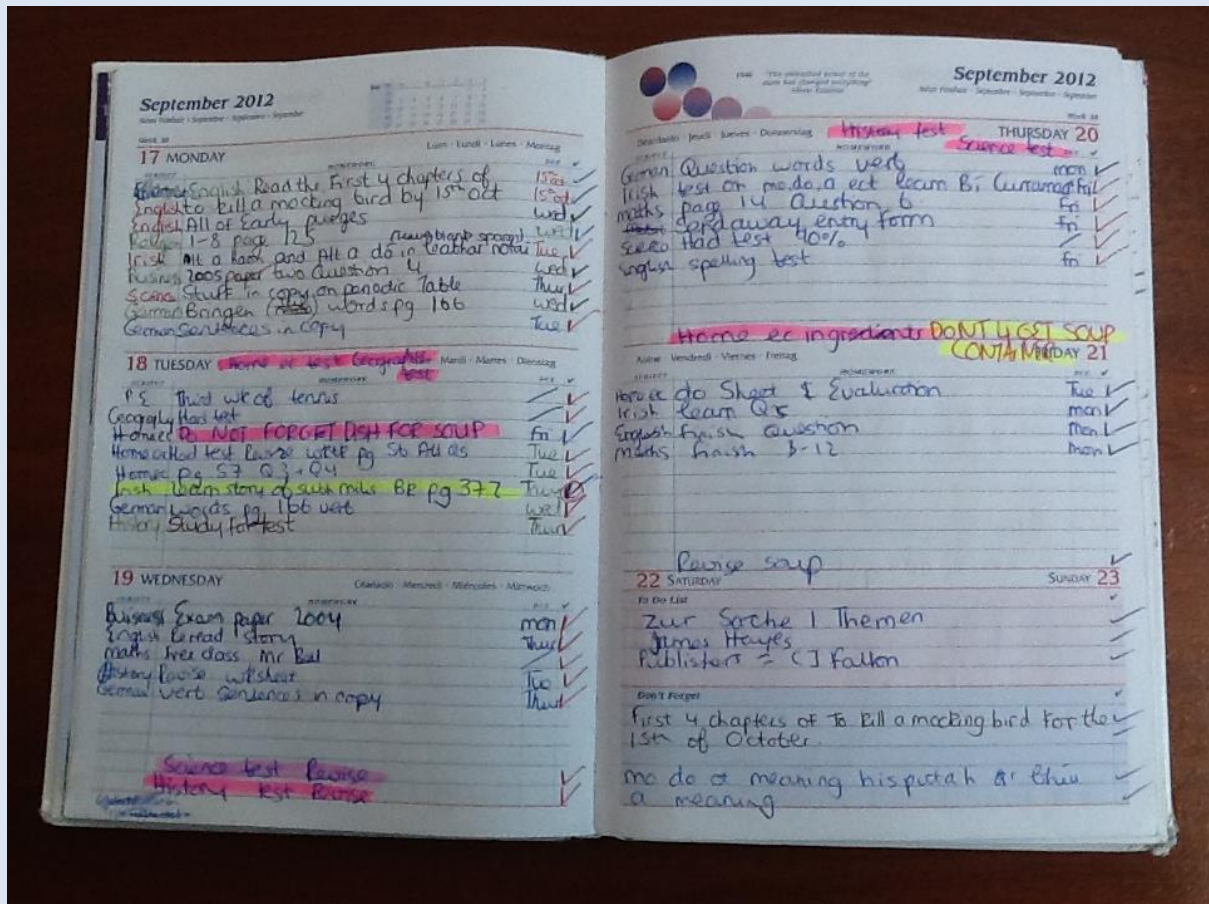 September 2012
17 MONDAY
Luan · Lundi · Lunes · Montag
HOMEWORK
English Read the First 4 chapters of 15th oct
English to kill a mocking bird by 15th Oct 15th oct
English All of Early purges wed
1-8 page 125 wed
Irish Alt a and Alt a do in Tue
2005 paper two Question 4 wed
Stuff in copy on periodic Table Thur
German Bringen words pg 166 wed
German Sentences in copy Tue
18 TUESDAY Home ec test Geography test
Mardi · Martes · Dienstag
HOMEWORK
PE Third wk of tennis
Geography Had test
Home ec DO NOT FORGET DISH FOR SOUP Fri
Home ec Had test pg 56 Tue
Home ec pg 57 Q3 + Q4 Tue
Irish learn story of BR pg 372 Thur
German words pg 166 vert wed
History Study for test Thur
19 WEDNESDAY
Céadaoin · Mercredi · Miércoles · Mittwoch
HOMEWORK
Business Exam paper 2004 mon
English Reread story Thur
maths free class Mr
History Revise wksheet Tue
German vert Sentences in copy Thur
Science test Revise
History test Revise
September 2012
Week 38
Déardaoin · Jeudi · Jueves · Donnerstag
History test
THURSDAY 20
Science test
HOMEWORK
German Question words vert mon
Irish test on mo, do, a ect learn Bí Fri
maths page 14 Question 6 Fri
send away entry form Fri
Had test 40%
English spelling test fri
Home ec ingredients DONT 4 GET SOUP
CONTAINER
DAY 21
Aoine · Vendredi · Viernes · Freitag
HOMEWORK
Home ec do Sheet & Evaluation Tue
Irish learn Q5 mon
English finish Question mon
maths finish 3-12 mon
Revise soup
22 SATURDAY
SUNDAY 23
To Do List
Zur Sache 1 Themen
James Hayes
Publishers = CJ Fallon
Don't Forget
First 4 chapters of To kill a mocking bird for the
15th of October.
mo do a meaning his
a meaning